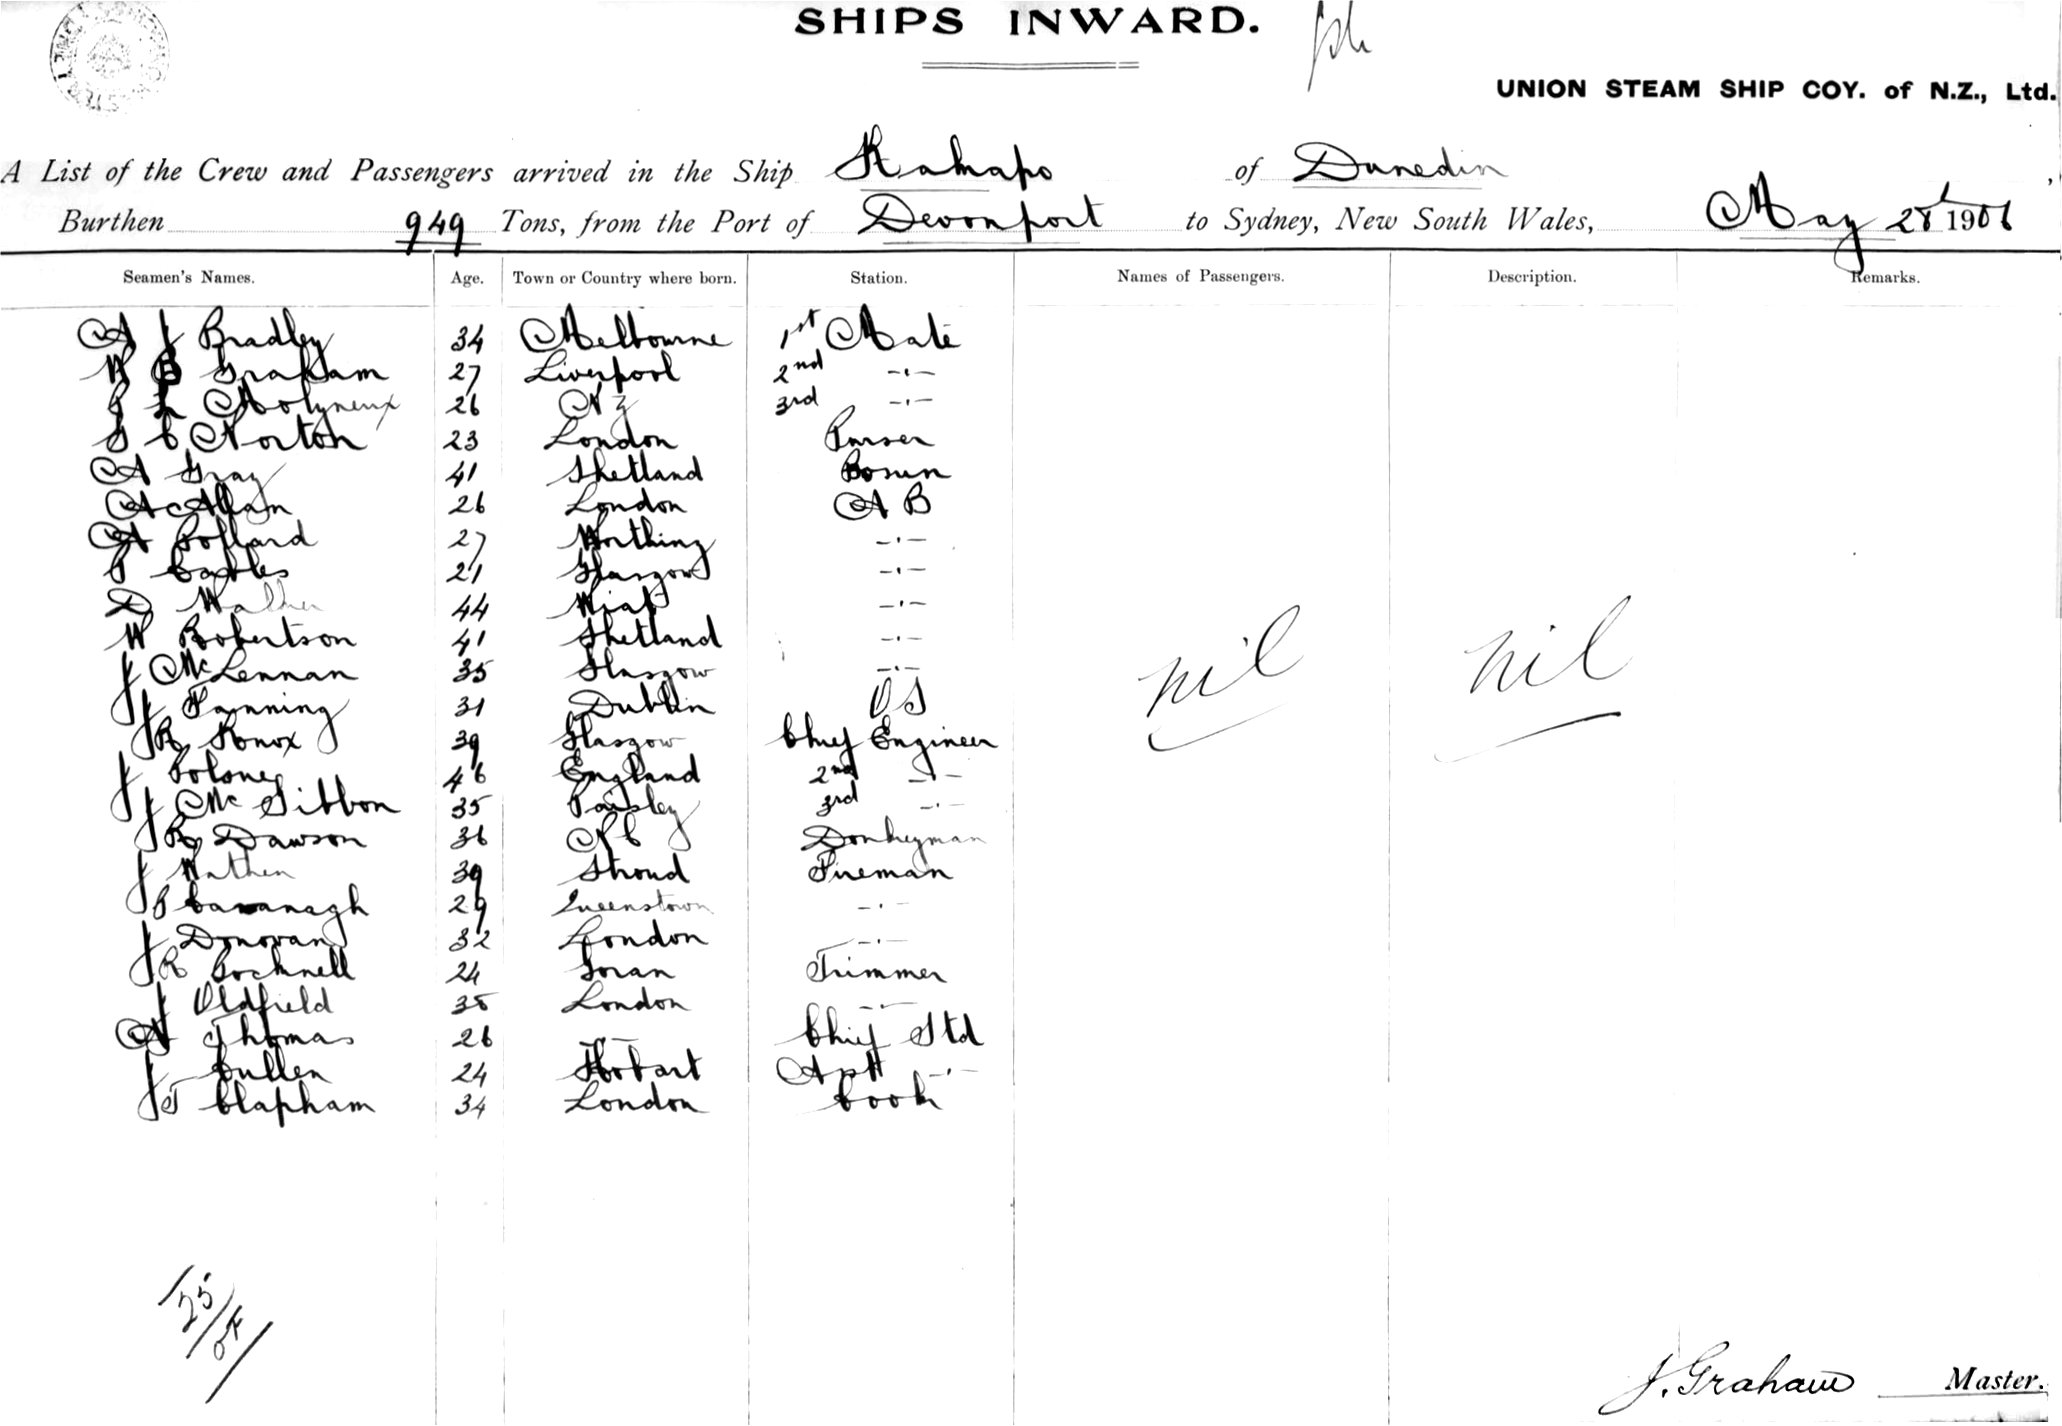 SHIPS INWARD.
UNION STEAM SHIP COY. of N.Z., Ltd.
A List of the Crew and Passengers arrived in the Ship Kakapo of Dunedin
Burthen 949 Tons, from the Port of Devonport to Sydney, New South Wales, May 28 1906
Seamen's Names. Age. Town or Country where born. Station. Names of Passengers. Description. Remarks.
A J Bradley 34 Melbourne 1st Mate
W B Graham 27 Liverpool 2nd -·-
J L Molyneux 26 N Z 3rd -·-
S C Norton 23 London Purser
A Gray 41 Shetland Bosun
A c Allam 26 London A B
A Pollard 27 Worthing -·-
P Cables 21 Glasgow -·-
D Walker 44 -·-
W Robertson 41 Shetland -·-
J McLennan 35 Glasgow -·-
J Fanning 31 Dublin O S
J R Knox 39 Glasgow Chief Engineer
J Poloney 46 England 2nd -·-
J McGibbon 35 Paisley 3rd -·-
J R Dawson 36 N C Donkeyman
J Wathen 39 Stroud Fireman
J P Cavanagh 29 Queenstown -·-
J Donovan 32 London -·-
J R Pocknell 24 Goran Trimmer
J Oldfield 35 London -·-
A Thomas 26 -·- Chief Std
J Cullen 24 Hobart Asst -·-
J T Clapham 34 London Cook
nil nil
25
J. Graham Master.